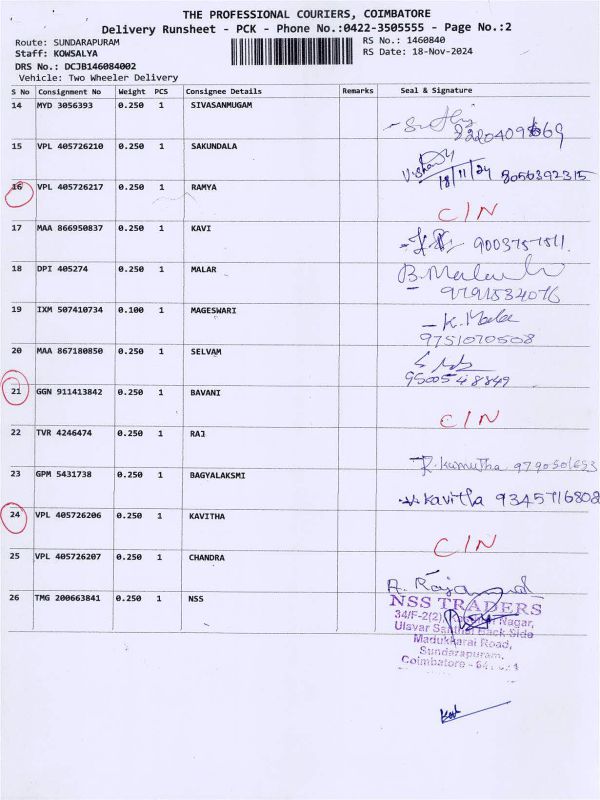 THE PROFESSIONAL COURIERS, COIMBATORE
Delivery Runsheet - PCK - Phone No.:0422-3505555 - Page No.:2
Route: SUNDARAPURAM RS No.: 1460840
Staff: KOWSALYA RS Date: 18-Nov-2024
DRS No.: DCJB146084002
Vehicle: Two Wheeler Delivery
S No Consignment No Weight PCS Consignee Details Remarks Seal & Signature
14 MYD 3056393 0.250 1 SIVASANMUGAM
15 VPL 405726210 0.250 1 SAKUNDALA
18/11/24 8056392315
16 VPL 405726217 0.250 1 RAMYA
C/N
17 MAA 866950837 0.250 1 KAVI
9003757511.
18 DPI 405274 0.250 1 MALAR
9791534076
19 IXM 507410734 0.100 1 MAGESWARI
K. Mala
9751070508
20 MAA 867180850 0.250 1 SELVAM
9500548849
21 GGN 911413842 0.250 1 BAVANI
C/N
22 TVR 4246474 0.250 1 RAJ
R. Kumutha 9790501653
23 GPM 5431738 0.250 1 BAGYALAKSMI
V. Kavitha 9345716808
24 VPL 405726206 0.250 1 KAVITHA
C/N
25 VPL 405726207 0.250 1 CHANDRA
26 TMG 200663841 0.250 1 NSS
NSS TRADERS
34/F-2(2) Nagar,
Ulavar Back Side
Madukkarai Road,
Sundarapuram,
Coimbatore